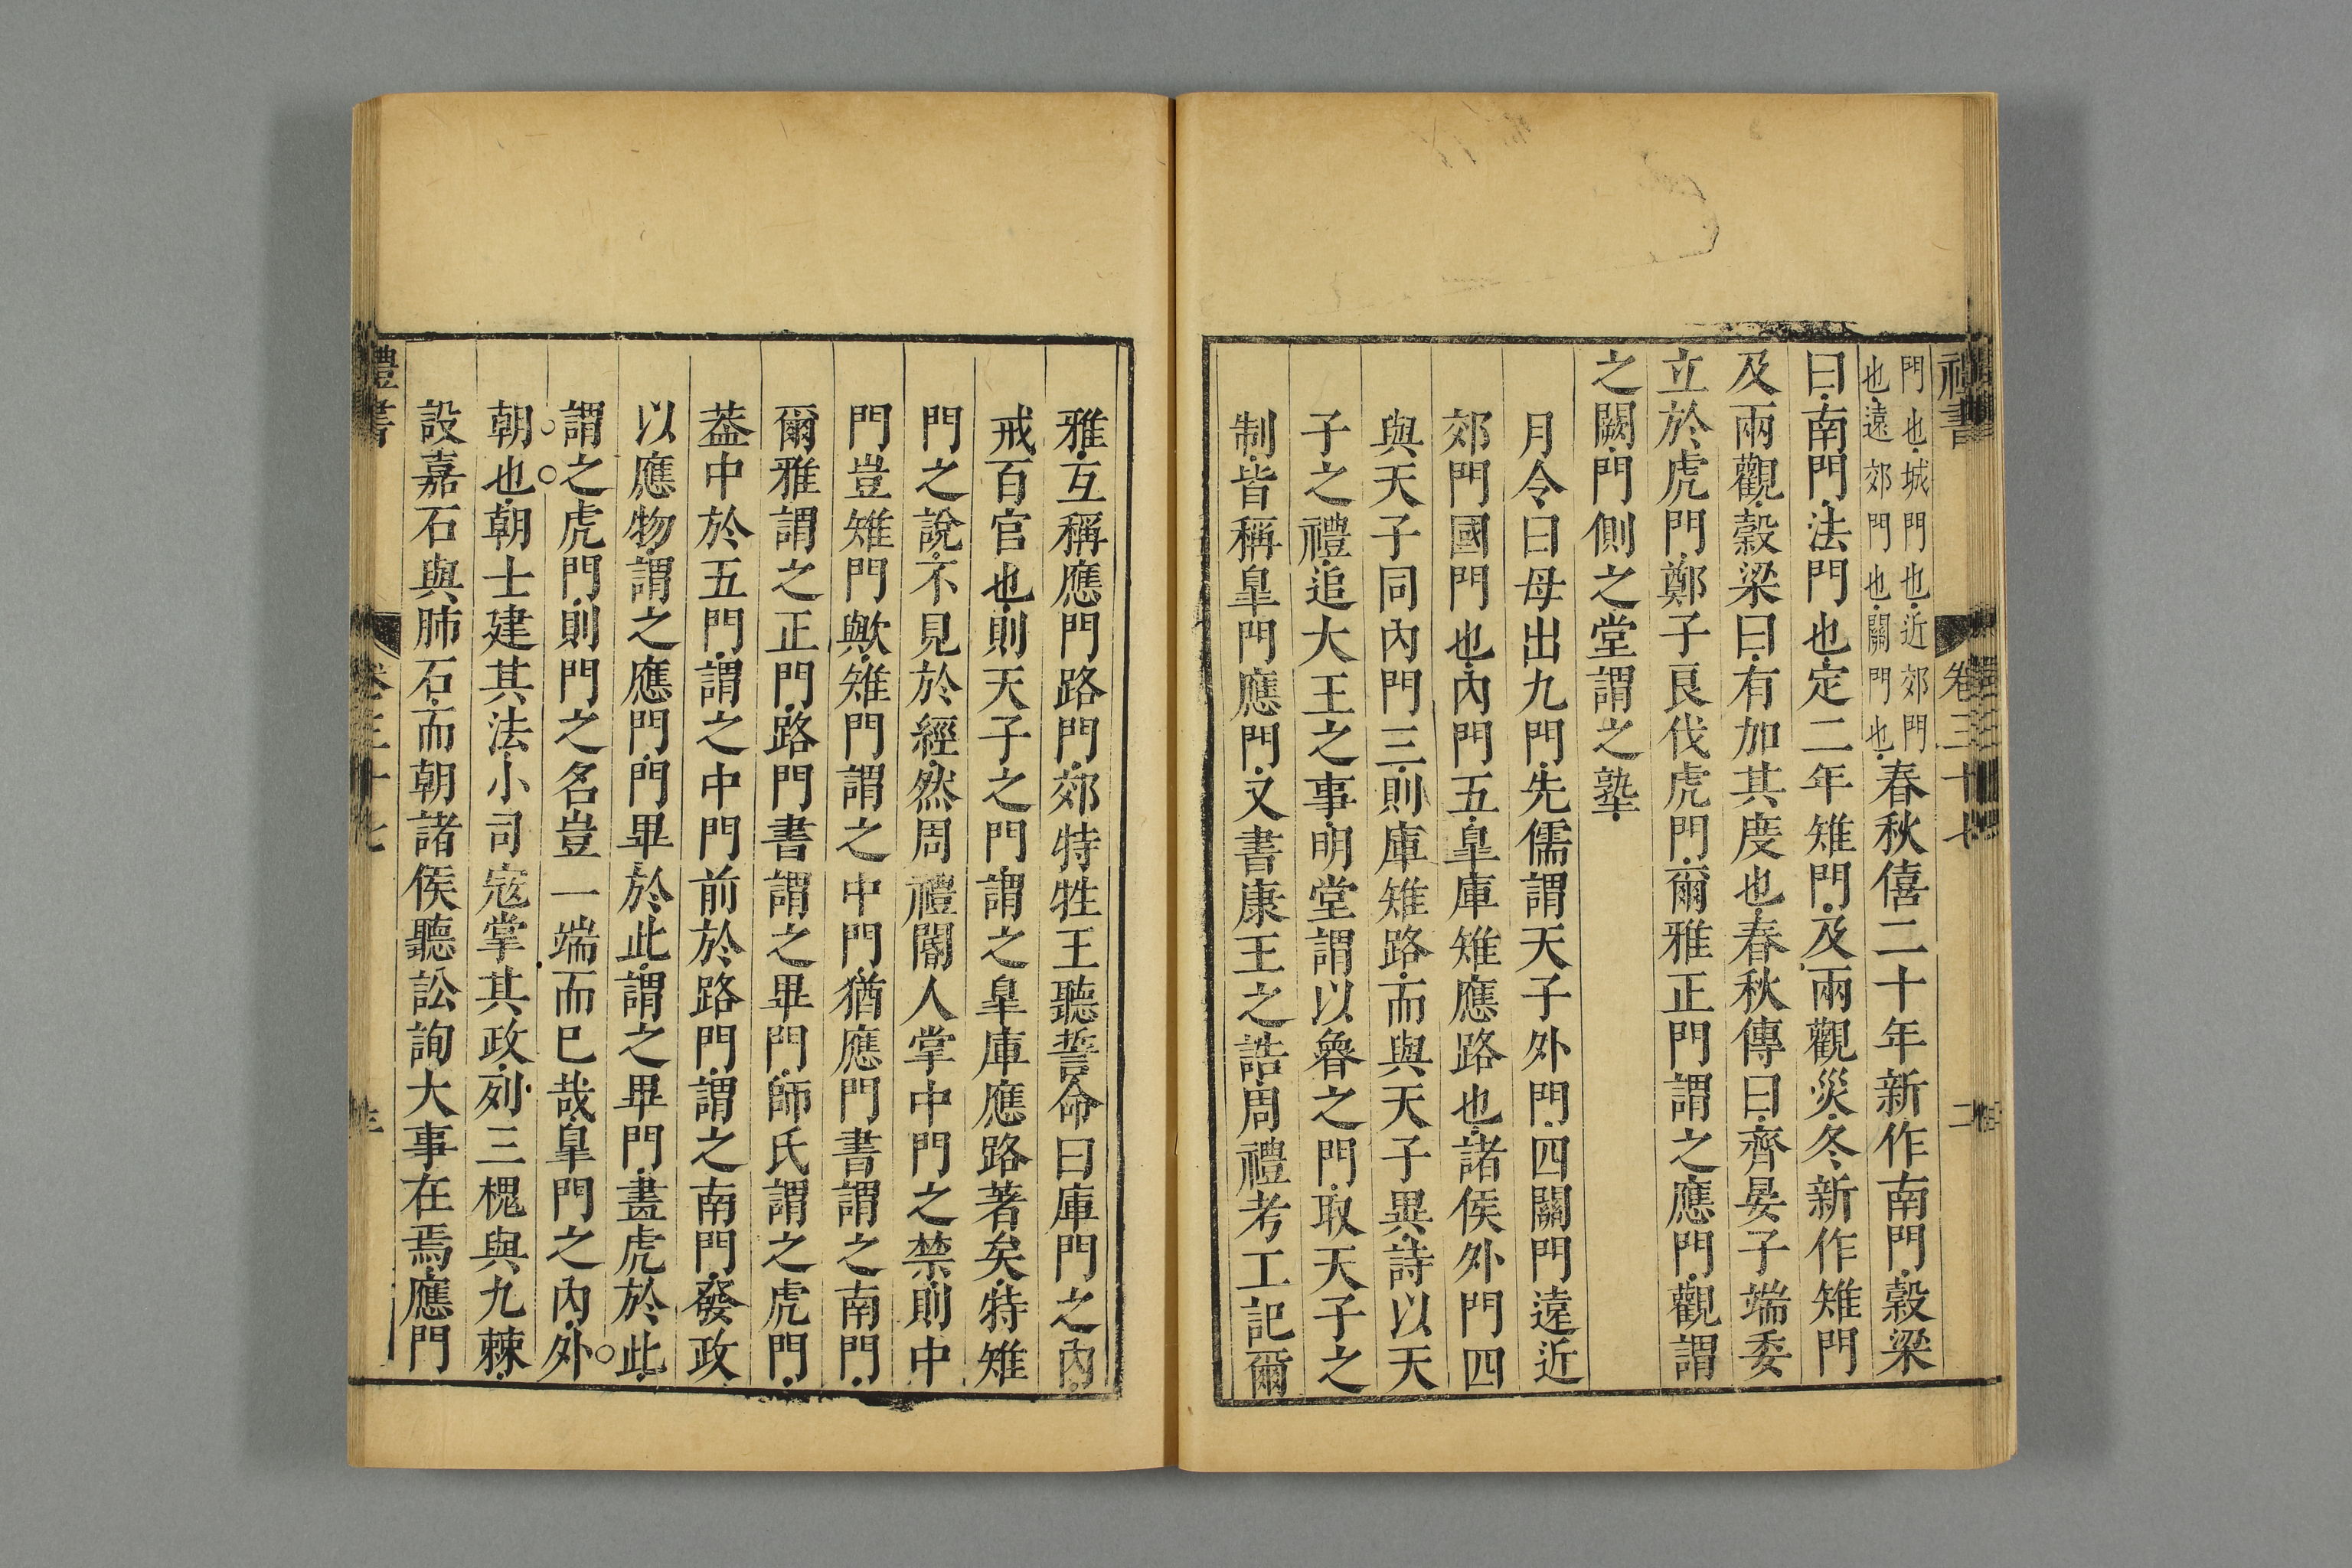 禮書 卷三十七 二
門也城門也近郊門
也遠郊門也關門也
春秋僖二十年新作南門穀梁
曰南門法門也定二年雉門及兩觀災冬新作雉門
及兩觀穀梁曰有加其度也春秋傳曰齊晏子端委
立於虎門鄭子良伐虎門爾雅正門謂之應門觀謂
之闕門側之堂謂之塾
月令曰毋出九門先儒謂天子外門四關門遠近
郊門國門也內門五皐庫雉應路也諸侯外門四
與天子同內門三則庫雉路而與天子異詩以天
子之禮追大王之事明堂謂以魯之門取天子之
制皆稱皐門應門文書康王之誥周禮考工記爾
雅互稱應門路門郊特牲王聽誓命曰庫門之內
戒百官也則天子之門謂之皐庫應路著矣特雉
門之說不見於經然周禮閽人掌中門之禁則中
門豈雉門歟雉門謂之中門猶應門書謂之南門
爾雅謂之正門路門書謂之畢門師氏謂之虎門
葢中於五門謂之中門前於路門謂之南門發政
以應物謂之應門門畢於此謂之畢門畫虎於此
謂之虎門則門之名豈一端而已哉皐門之內外
朝也朝士建其法小司寇掌其政列三槐與九棘
設嘉石與肺石而朝諸侯聽訟詢大事在焉應門
禮書 卷三十七